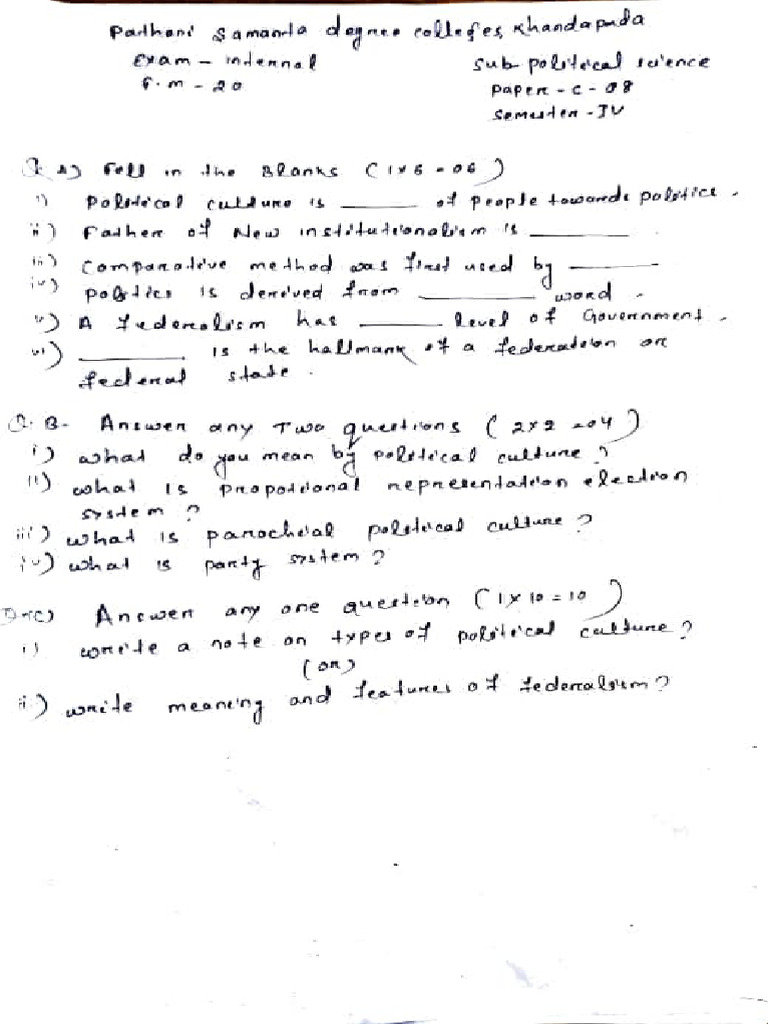 Pathani Samanta degree colleges, Khandapada
Exam - internal
Sub political science
F.m - 20
Paper - C - 08
Semester - IV
Q A) Fell in the Blanks (1x6 = 06)
i) Political culture is ______ of people towards politics.
ii) Father of New institutionalism is ______
iii) Comparative method was first used by ______
iv) politics is derived from ______ word.
v) A federalism has ______ level of Government.
vi) ______ is the hallmark of a federation or
federal state.
Q. B- Answer any Two questions (2x2 = 04)
i) what do you mean by political culture?
ii) what is propotional representation election
system?
iii) what is parochial political culture?
iv) what is party system?
Answer any one question (1 x 10 = 10)
i) write a note on types of political culture?
(or)
ii) write meaning and features of federalism?